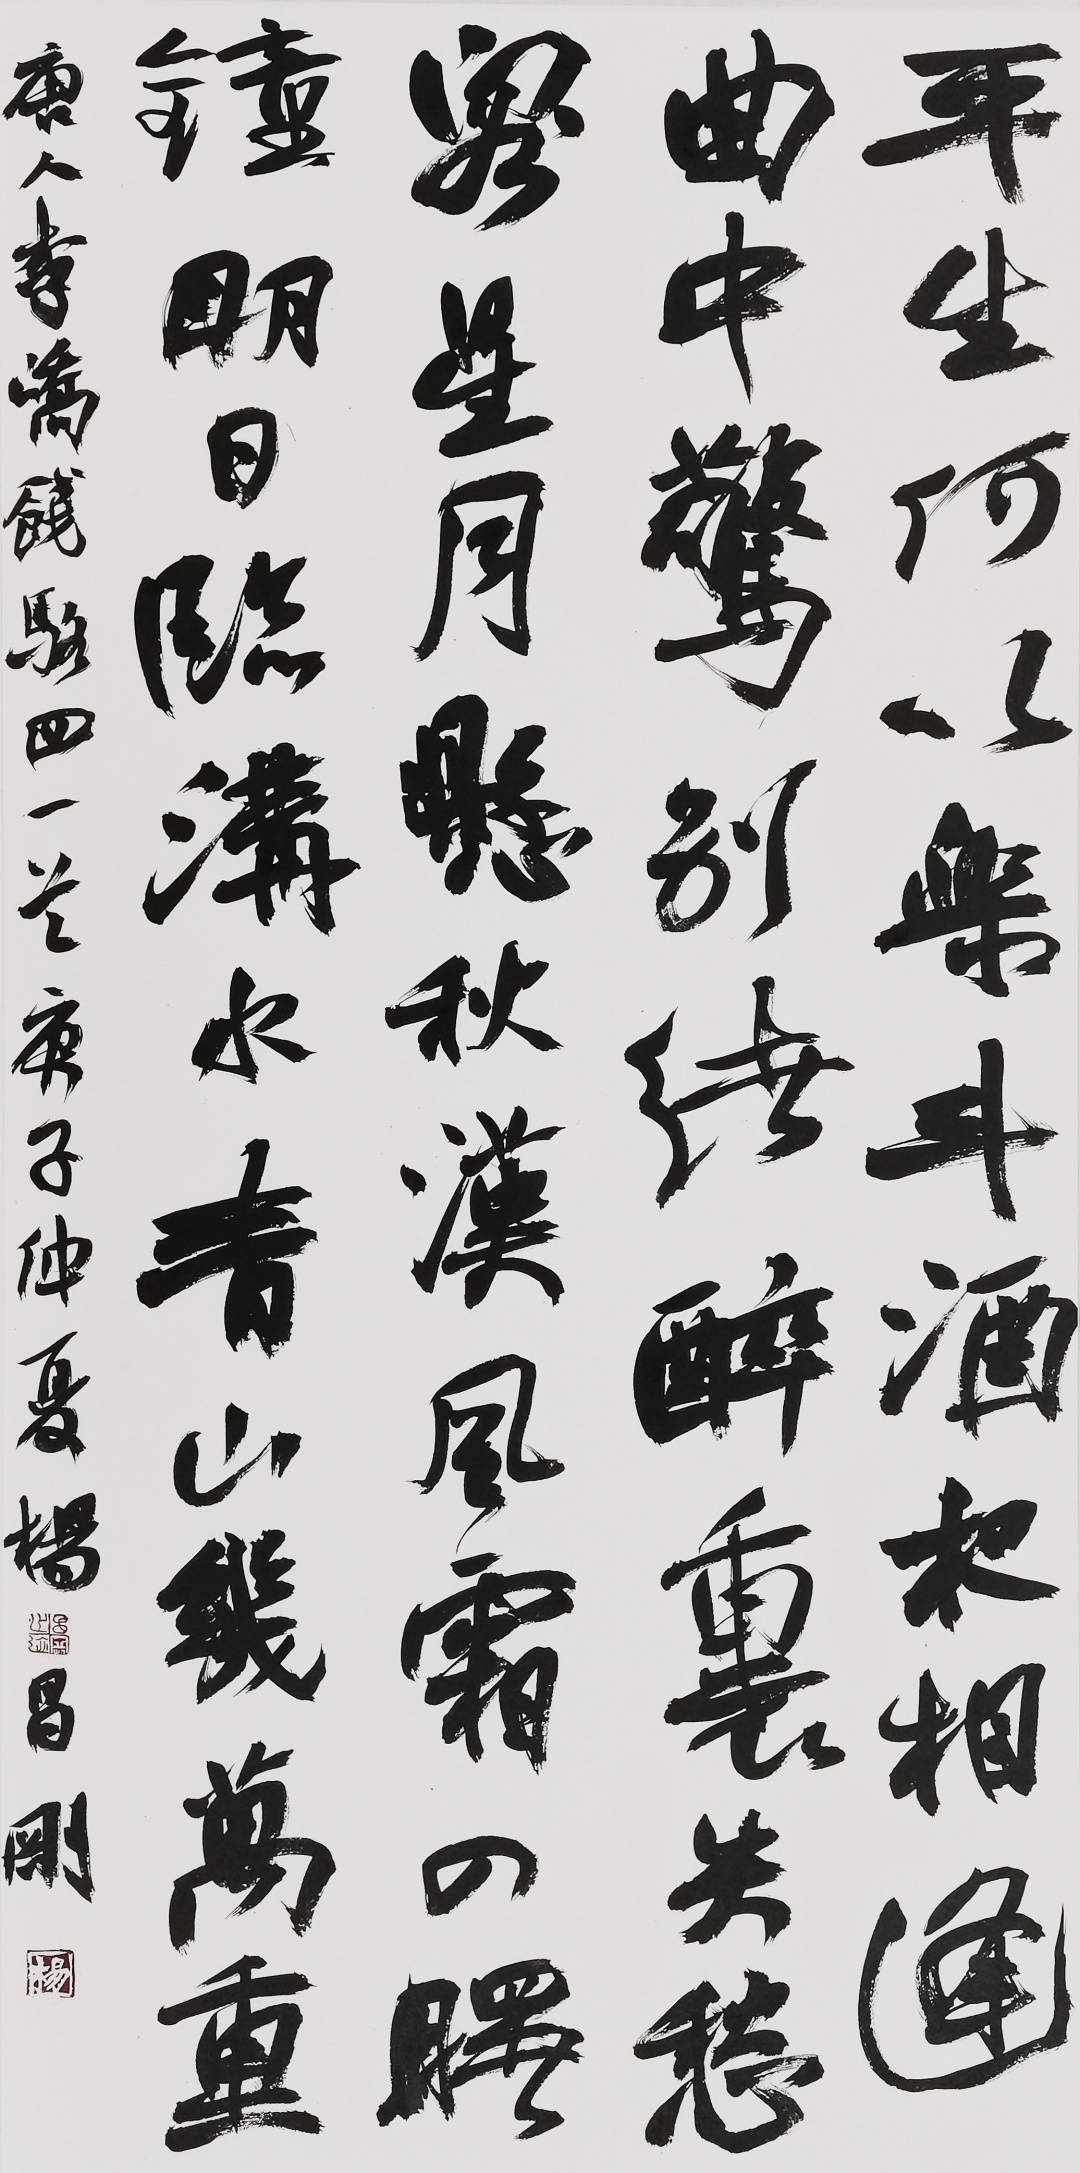 平生何以樂斗酒夜相逢
曲中驚別緒醉裏失愁
容星月懸秋漢風霜入曙
鐘明日臨溝水青山幾萬重
唐人李嶠餞駱四一首庚子仲夏楊昌剛
楊